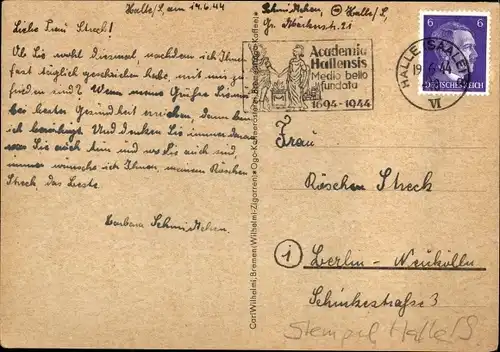 Halle/S, am 19.6.44
Liebe Frau Streck!
Ob Sie wohl diesmal, nachdem ich Ihnen
fast täglich geschrieben habe, mit mir zu-
frieden sind? Wenn meine Grüße Sie
bei bester Gesundheit erreichen, dann bin
ich beruhigt. Und denken Sie immer daran
was Sie auch tun und wo Sie auch sind,
immer wünsche ich Ihnen, meinem Röschen
Streck, das Beste.
Barbara
Carl Wilhelmi, Bremen
Halle/S,
21
Academia
Hallensis
Medio bello
fundata
1694-1944
HALLE (SAALE)
19.6.44
VI
6 6
DEUTSCHES REICH
Frau
Röschen Streck
Berlin-Neukölln
Schinkestraße 3
Stempel Halle/S